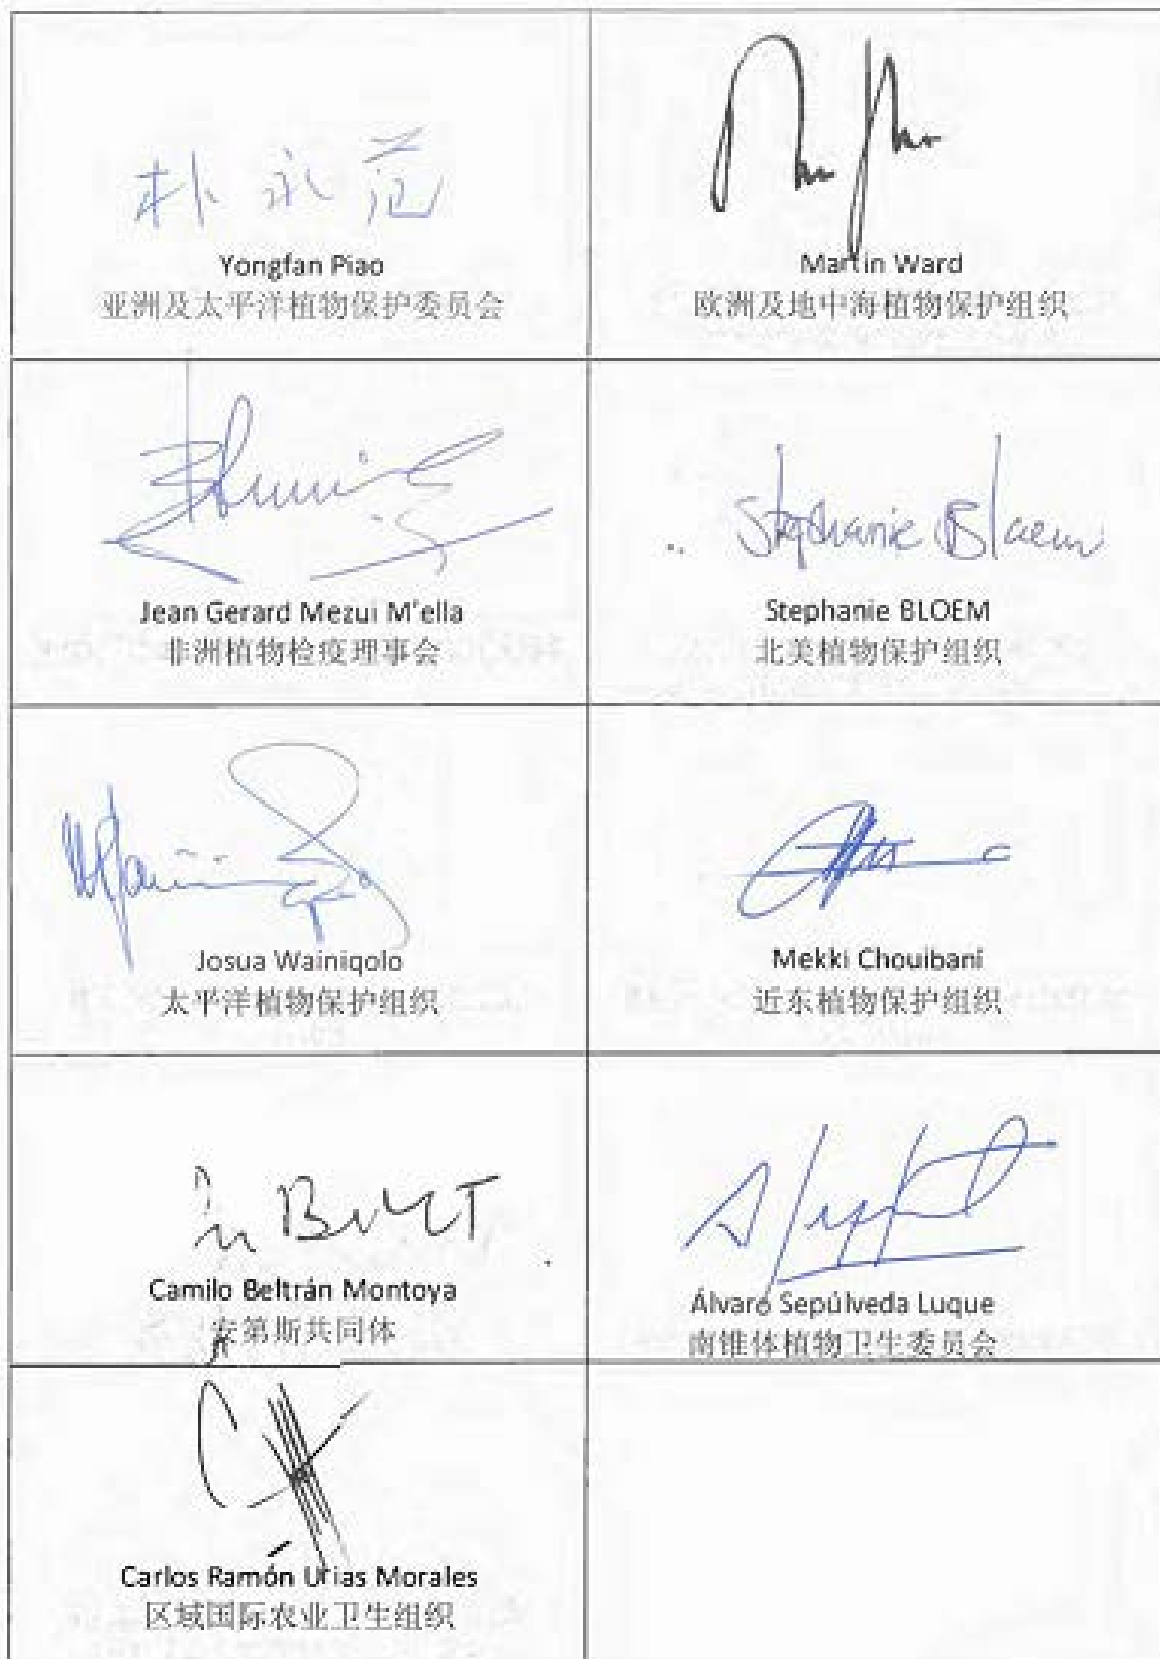 朴永范
Yongfan Piao
亚洲及太平洋植物保护委员会
Martin Ward
欧洲及地中海植物保护组织
Jean Gerard Mezui M'ella
非洲植物检疫理事会
Stephanie Bloem
Stephanie BLOEM
北美植物保护组织
Josua Wainiqolo
太平洋植物保护组织
Mekki Chouibani
近东植物保护组织
Camilo Beltrán Montoya
安第斯共同体
Álvaro Sepúlveda Luque
南锥体植物卫生委员会
Carlos Ramón Urias Morales
区域国际农业卫生组织